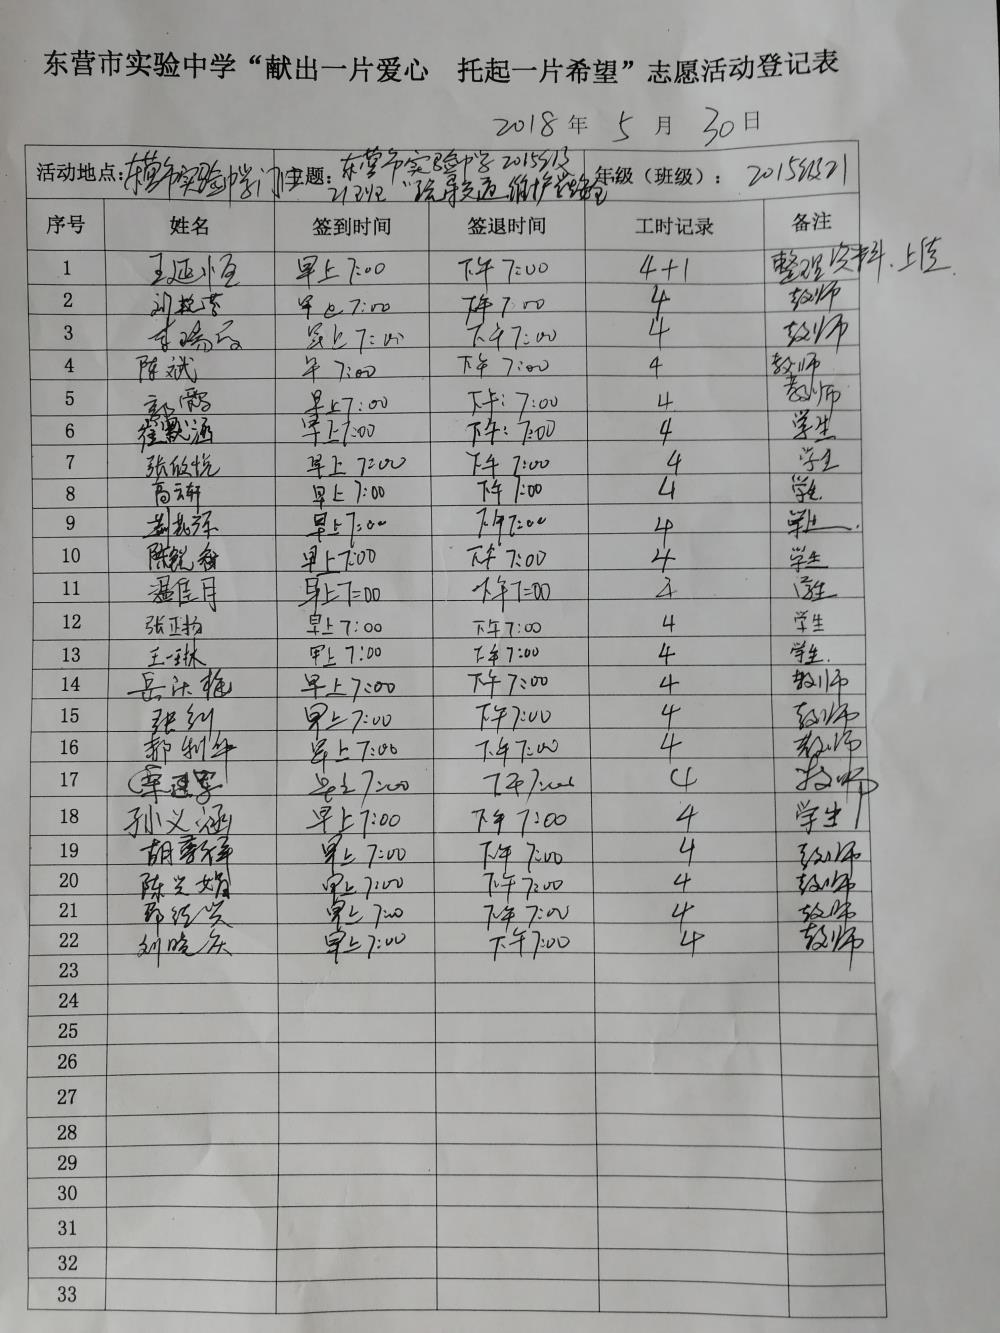 东营市实验中学“献出一片爱心 托起一片希望”志愿活动登记表
2018年 5月 30日
活动地点：东营市实验中学门口 主题：东营市实验中学2015级 年级（班级）：2015级21
21班“疏导交通 维护
序号 姓名 签到时间 签退时间 工时记录 备注
1 早上7:00 下午7:00 4+1 整理资料、上传
2 早上7:00 下午7:00 4 教师
3 早上7:00 下午7:00 4 教师
4 陈斌 午7:00 下午7:00 4 教师
5 郭霞 早上7:00 下午:7:00 4 教师
6 早上7:00 下午:7:00 4 学生
7 张欣悦 早上7:00 下午7:00 4 学生
8 高云轩 早上7:00 下午7:00 4 学生
9 早上7:00 下午7:00 4 学生
10 早上7:00 下午7:00 4 学生
11 温佳月 早上7:00 下午7:00 4 学生
12 张正扬 早上7:00 下午7:00 4 学生
13 王一琳 早上7:00 下午7:00 4 学生.
14 早上7:00 下午7:00 4 教师
15 张剑 早上7:00 下午7:00 4 教师
16 郝利华 早上7:00 下午7:00 4 教师
17 早上7:00 下午7:00 4 教师
18 孙义涵 早上7:00 下午7:00 4 学生
19 早上7:00 下午7:00 4 教师
20 陈兰娟 早上7:00 下午7:00 4 教师
21 早上7:00 下午7:00 4 教师
22 刘晓庆 早上7:00 下午7:00 4 教师
23
24
25
26
27
28
29
30
31
32
33